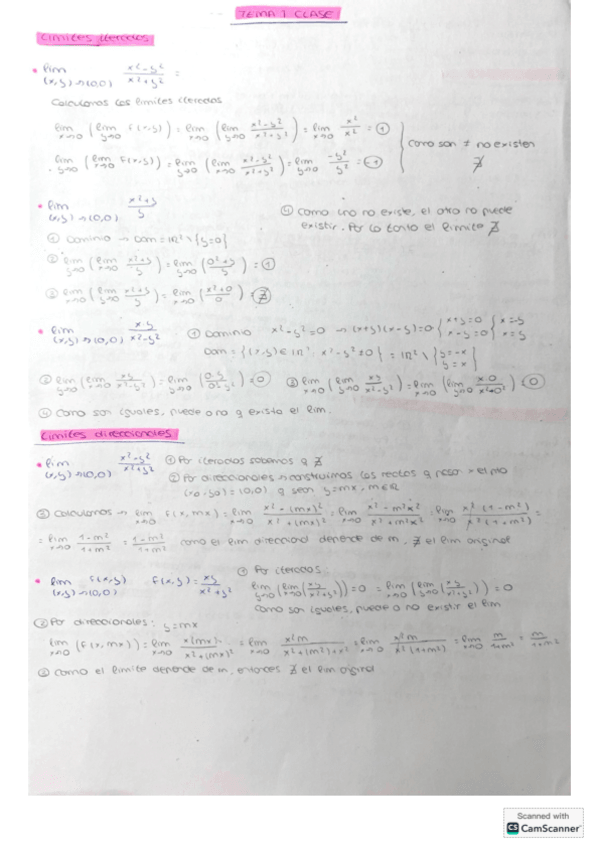 TEMA 1 CLASE
Límites iterados
• lim (x,y)→(0,0) x²-y² / x²+y² =
Calculamos los límites iterados
lim x→0 (lim y→0 f(x,y)) = lim x→0 (lim y→0 x²-y² / x²+y²) = lim x→0 x²/x² = 1
lim y→0 (lim x→0 f(x,y)) = lim y→0 (lim x→0 x²-y² / x²+y²) = lim y→0 -y²/y² = -1
como son ≠ no existen ∄
• lim (x,y)→(0,0) x²+y / y
① Dominio → Dom = ℝ² \ {y=0}
② lim y→0 (lim x→0 x²+y / y) = lim y→0 (0²+y / y) = 1
③ lim x→0 (lim y→0 x²+y / y) = lim x→0 (x²+0 / 0) = ∄
④ Como uno no existe, el otro no puede
existir. Por lo tanto el límite ∄
• lim (x,y)→(0,0) xy / x²-y²
① Dominio x²-y²=0 → (x+y)(x-y)=0 { x+y=0 { x=-y
x-y=0 { x=y
Dom = {(x,y)∈ℝ², x²-y²≠0} = ℝ² \ {y=-x
y=x}
② lim y→0 (lim x→0 xy / x²-y²) = lim y→0 (0·y / 0²-y²) = 0 ③ lim x→0 (lim y→0 xy / x²-y²) = lim x→0 (lim y→0 x·0 / x²-0²) = 0
④ Como son iguales, puede o no q exista el lim.
Límites direccionales
• lim (x,y)→(0,0) x²-y² / x²+y² ① Por iterados sabemos q ∄
② Por direccionales → construimos las rectas q pasan x el pto
(x0,y0) = (0,0) q sean y=mx, m∈ℝ
③ Calculamos → lim x→0 f(x,mx) = lim x→0 x²-(mx)² / x²+(mx)² = lim x→0 x²-m²x² / x²+m²x² = lim x→0 x²(1-m²) / x²(1+m²) =
= lim x→0 1-m² / 1+m² = 1-m² / 1+m² como el lim direccional depende de m, ∄ el lim original
• lim (x,y)→(0,0) f(x,y) f(x,y) = xy / x²+y²
① Por iterados:
lim y→0 (lim x→0 (xy / x²+y²)) = 0 = lim x→0 (lim y→0 (xy / x²+y²)) = 0
Como son iguales, puede o no existir el lim
② Por direccionales: y=mx
lim x→0 (f(x,mx)) = lim x→0 x(mx) / x²+(mx)² = lim x→0 x²m / x²+(m²)·x² = lim x→0 x²m / x²(1+m²) = lim x→0 m / 1+m² = m / 1+m²
③ Como el límite depende de m, entonces ∄ el lim original
Scanned with
CS CamScanner